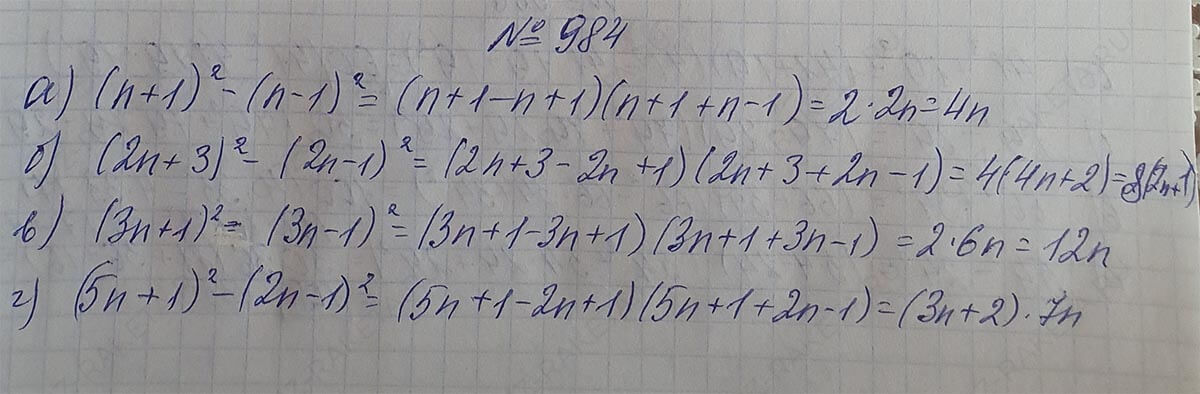 № 984
а) (n+1)² - (n-1)² = (n+1-n+1)(n+1+n-1) = 2·2n = 4n
б) (2n+3)² - (2n-1)² = (2n+3-2n+1)(2n+3+2n-1) = 4(4n+2) = 8(2n+1)
в) (3n+1)² = (3n-1)² = (3n+1-3n+1)(3n+1+3n-1) = 2·6n = 12n
г) (5n+1)² - (2n-1)² = (5n+1-2n+1)(5n+1+2n-1) = (3n+2)·7n